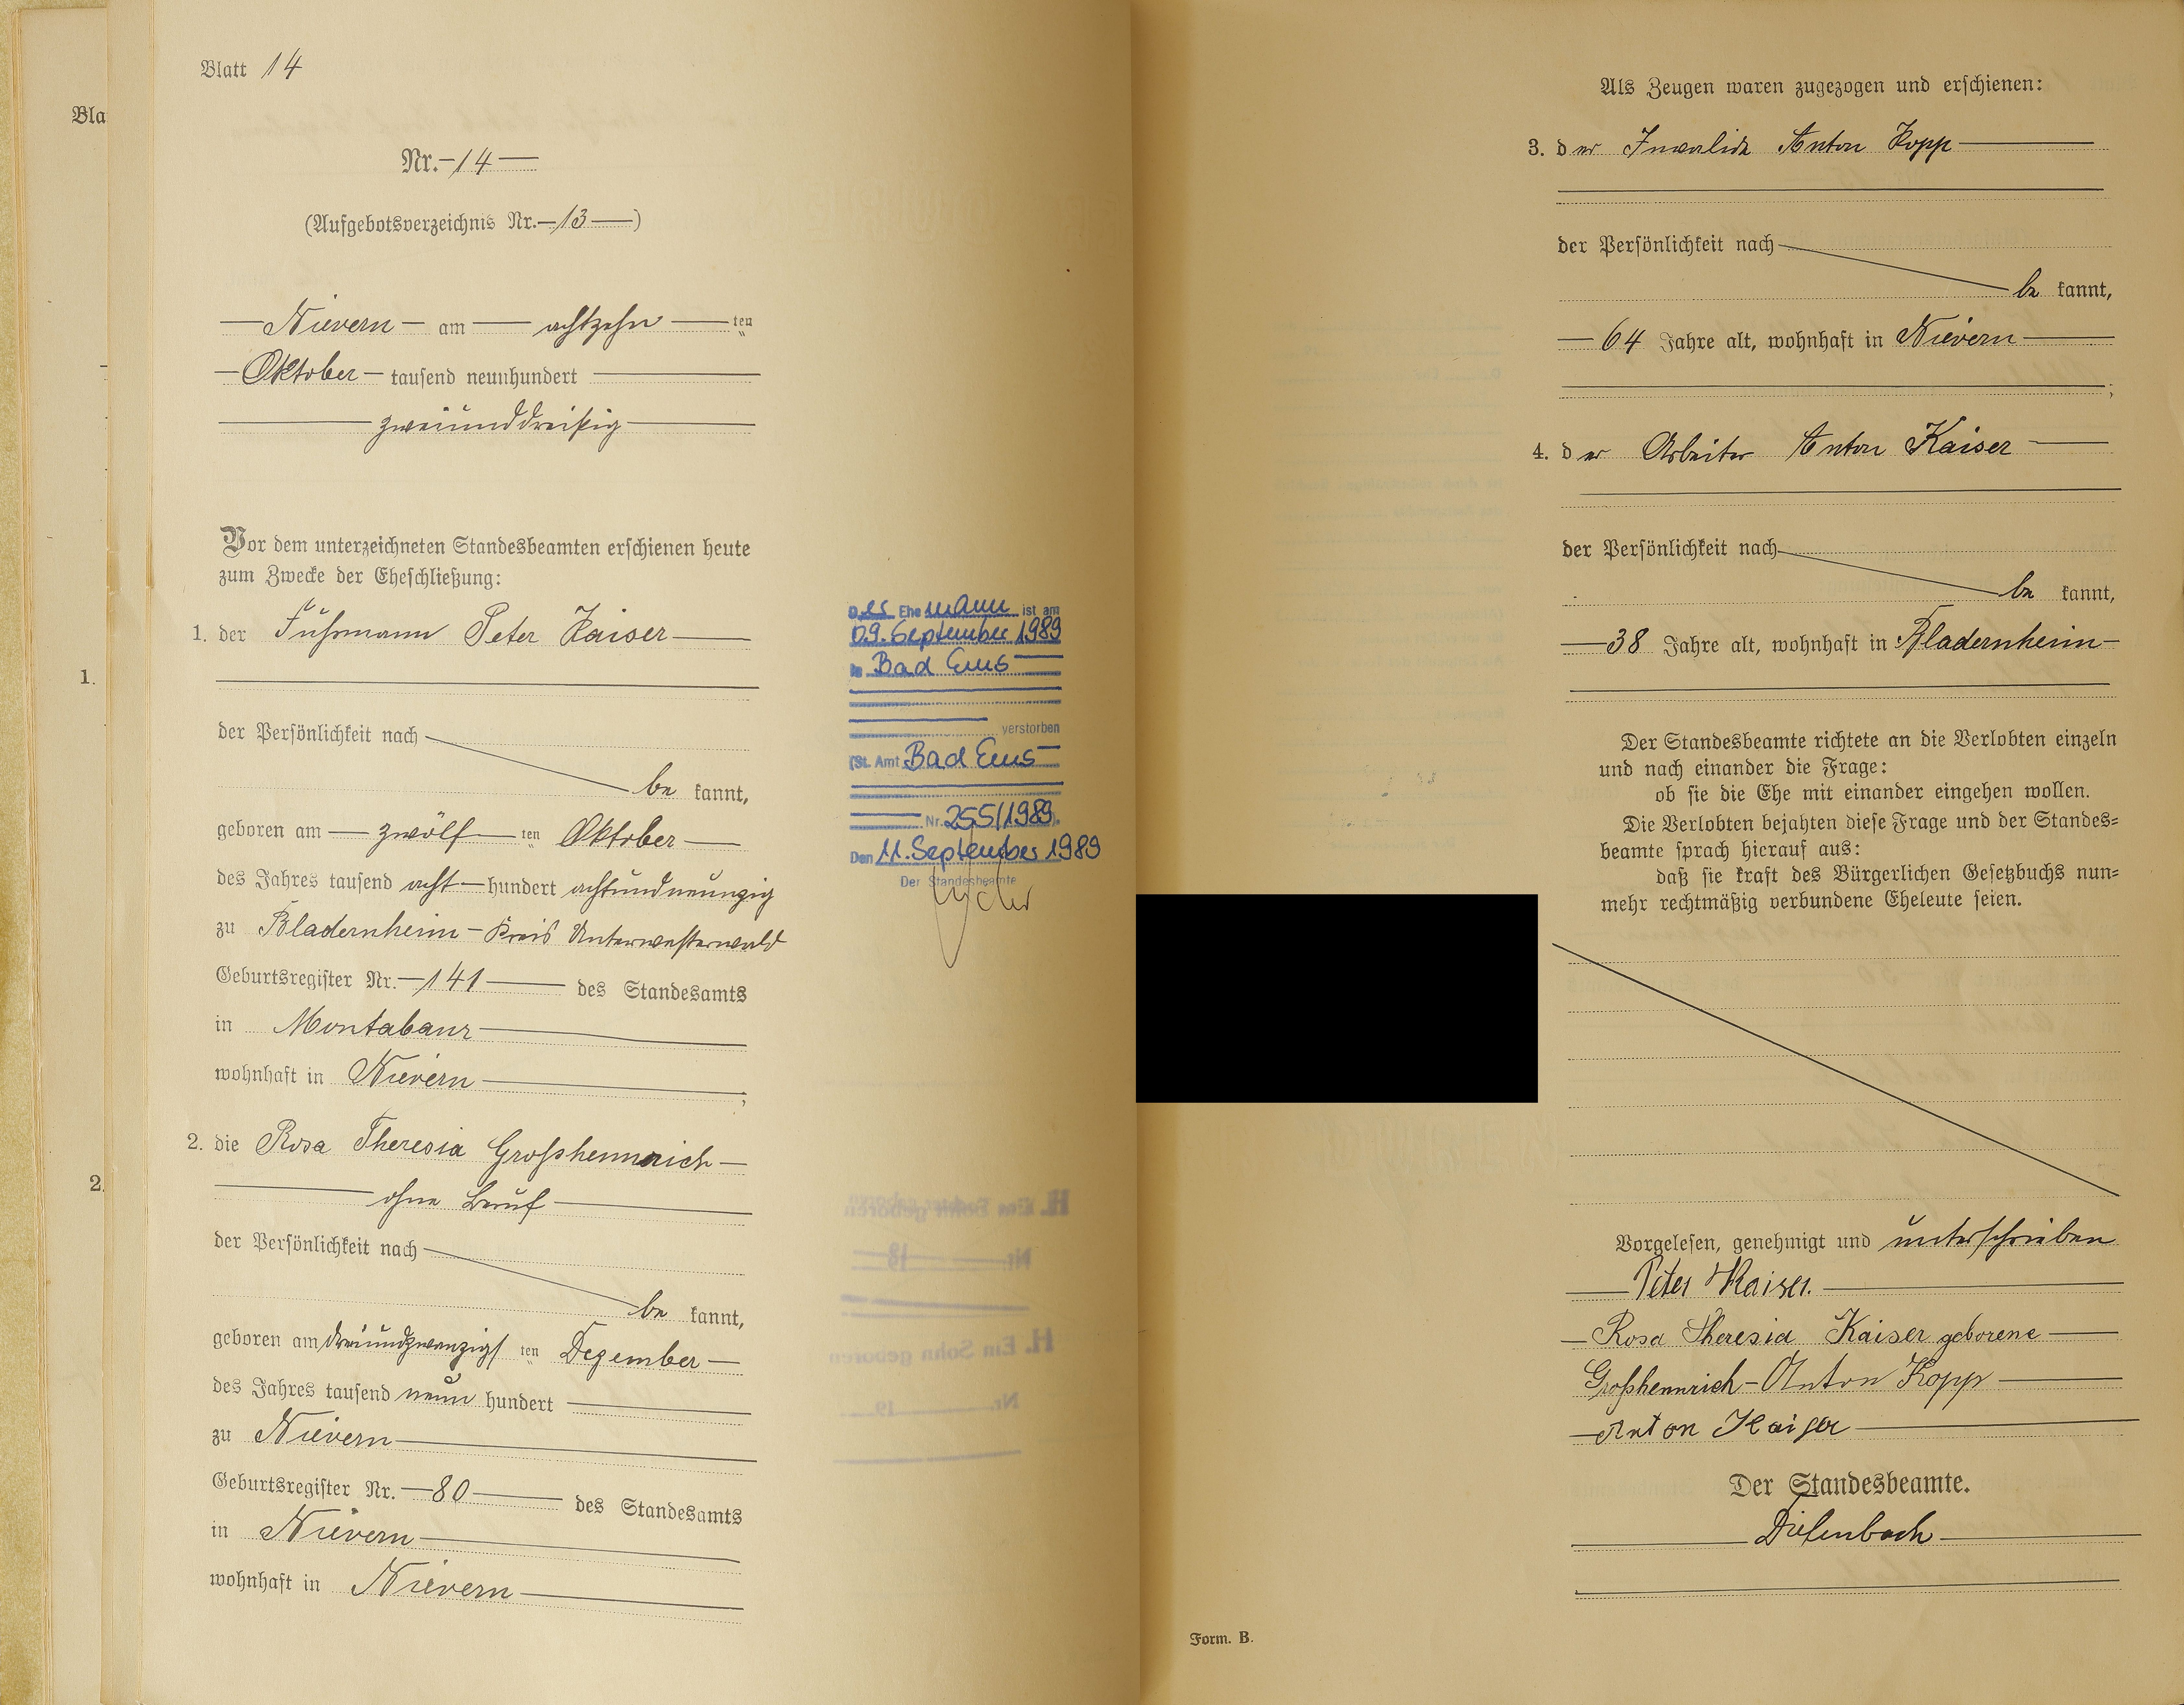 Blatt 14
Bla
Nr. 14
(Aufgebotsverzeichnis Nr. 13)
Nievern am achtzehn ten
Oktober tausend neunhundert
zweiunddreißig
Vor dem unterzeichneten Standesbeamten erschienen heute
zum Zwecke der Eheschließung:
1. der Fuhrmann Peter Kaiser
1.
der Persönlichkeit nach
be kannt,
geboren am zwölf ten Oktober
des Jahres tausend acht hundert achtundneunzig
zu Bladernheim - Kreis Unterwesterwald
Geburtsregister Nr. 141 des Standesamts
in Montabaur
wohnhaft in Nievern ;
2. die Rosa Theresia Großhennrich
2.
ohne Beruf
der Persönlichkeit nach
be kannt,
geboren am dreiundzwanzigs ten Dezember
des Jahres tausend neun hundert
zu Nievern
Geburtsregister Nr. 80 des Standesamts
in Nievern
wohnhaft in Nievern
Der Ehemann ist am
09. September 1989
in Bad Ems
verstorben
(St. Amt Bad Ems
Nr. 255/1989).
Den 11. September 1989
Der Standesbeamte
Als Zeugen waren zugezogen und erschienen:
3. der Invalide Anton Kopp
der Persönlichkeit nach
be kannt,
64 Jahre alt, wohnhaft in Nievern
;
4. der Arbeiter Anton Kaiser
der Persönlichkeit nach
be kannt,
38 Jahre alt, wohnhaft in Bladernheim
Der Standesbeamte richtete an die Verlobten einzeln
und nach einander die Frage:
ob sie die Ehe mit einander eingehen wollen.
Die Verlobten bejahten diese Frage und der Standes=
beamte sprach hierauf aus:
daß sie kraft des Bürgerlichen Gesetzbuchs nun=
mehr rechtmäßig verbundene Eheleute seien.
Vorgelesen, genehmigt und unterschrieben
Peter Kaiser.
Rosa Theresia Kaiser geborene
Großhennrich - Anton Kopp
Anton Kaiser
Der Standesbeamte.
Diefenbach
Form. B.